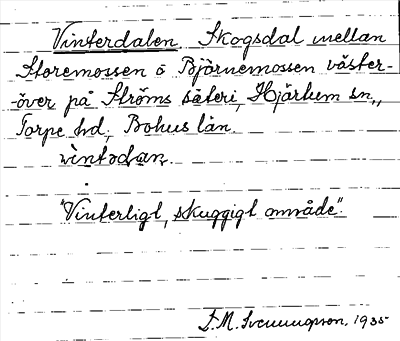 Vinterdalen Skogsdal mellan
Storemossen o Björnemossen väster-
-över på Ströms säteri, Hjärtum sn,,
Torpe hd, Bohus län.
vìntədan.
"Vinterligt, skuggigt område".
S. M. Svenungsson, 1935